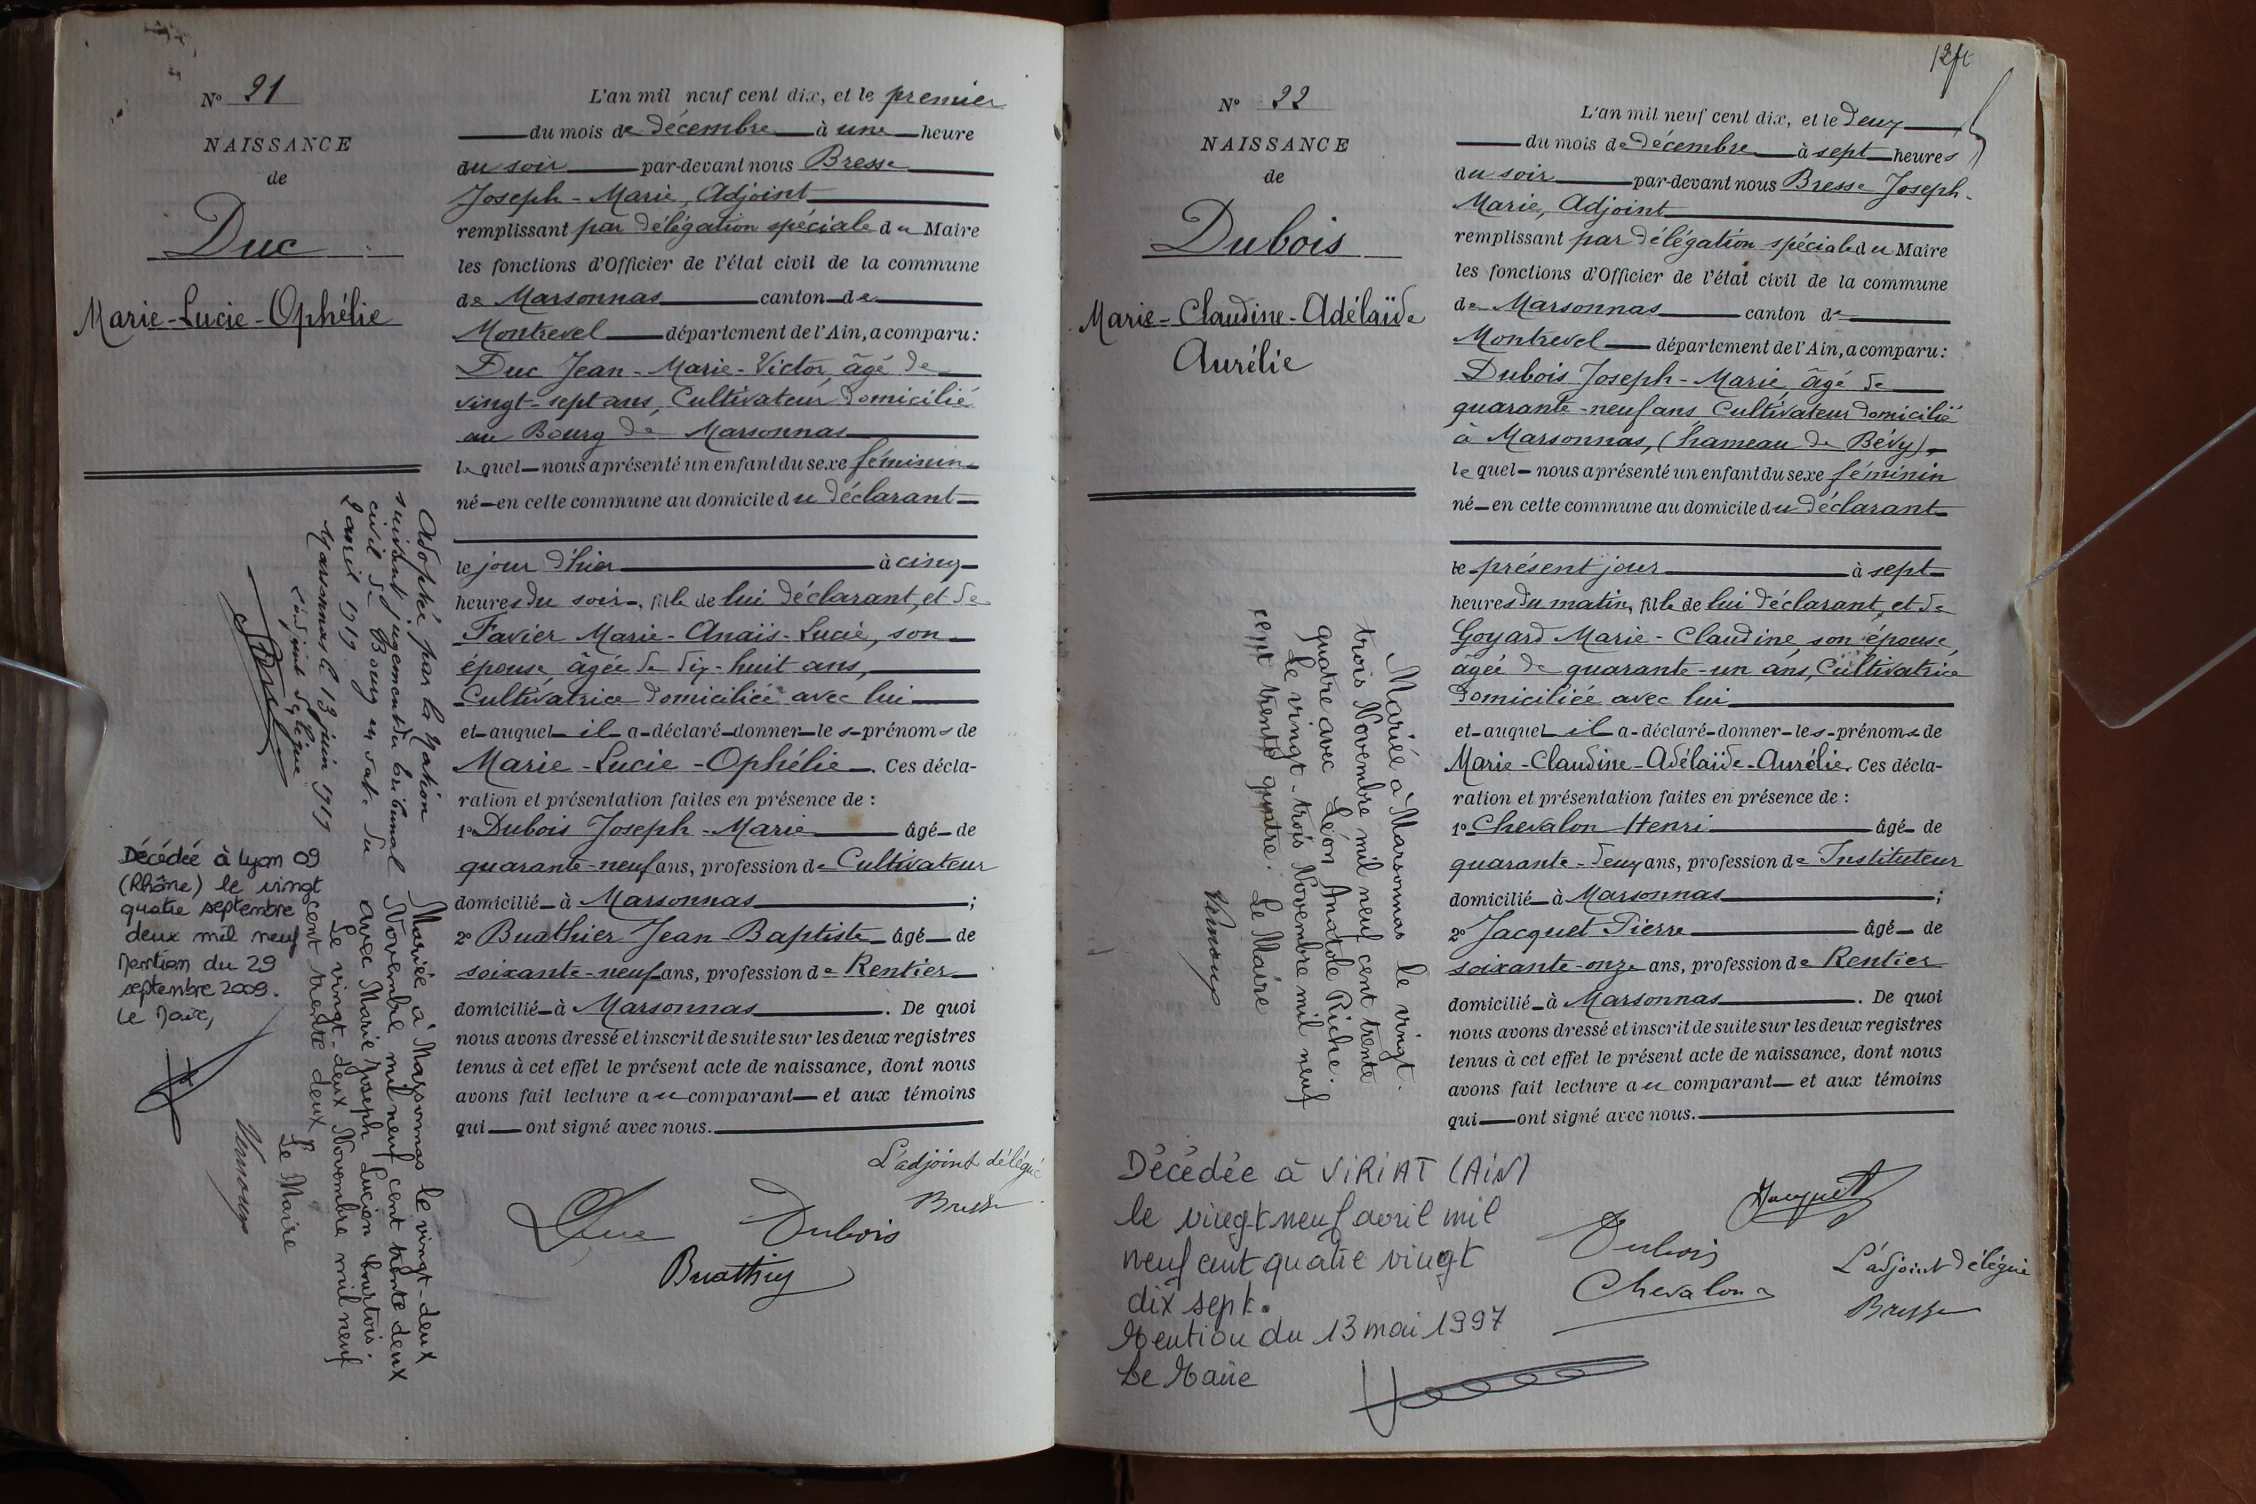 N° 21
NAISSANCE
de
Duc
Marie-Lucie-Ophélie
L'an mil neuf cent dix, et le premier
du mois de décembre à une heure
du soir par-devant nous Bresse
Joseph-Marie, Adjoint
remplissant par délégation spéciale du Maire
les fonctions d'Officier de l'état civil de la commune
de Marsonnas canton de
Montrevel département de l'Ain, a comparu:
Duc Jean-Marie-Victor, âgé de
vingt-sept ans, Cultivateur domicilié
au Bourg de Marsonnas
lequel nous a présenté un enfant du sexe féminin
né en cette commune au domicile du déclarant
le jour d'hier à cinq
heures du soir, fille de lui déclarant, et de
Favier Marie-Anaïs-Lucie, son
épouse âgée de dix-huit ans,
Cultivatrice domiciliée avec lui
et auquel il a déclaré donner les prénoms de
Marie-Lucie-Ophélie. Ces décla-
ration et présentation faites en présence de :
1° Dubois Joseph-Marie âgé de
quarante-neuf ans, profession de Cultivateur
domicilié à Marsonnas ;
2° Buathier Jean-Baptiste âgé de
soixante-neuf ans, profession de Rentier
domicilié à Marsonnas. De quoi
nous avons dressé et inscrit de suite sur les deux registres
tenus à cet effet le présent acte de naissance, dont nous
avons fait lecture au comparant et aux témoins
qui ont signé avec nous.
L'adjoint délégué
Bresse
Duc Dubois
Buathier
Adoptée par la Nation
suivant jugement du tribunal
civil de Bourg en date du
Marsonnas le 13 juin 1919
L'adjoint délégué
Mariée à Marsonnas le vingt-deux
Novembre mil neuf cent trente deux
avec Marie Joseph Lucien Courtois.
Le vingt-deux Novembre mil neuf
cent trente deux
Le Maire
Décédée à Lyon 09
(Rhône) le vingt
quatre septembre
deux mil neuf
Mention du 29
septembre 2009.
Le Maire,
12
N° 22
NAISSANCE
de
Dubois
Marie-Claudine-Adélaïde
Aurélie
L'an mil neuf cent dix, et le deux
du mois de décembre à sept heures
du soir par-devant nous Bresse Joseph-
Marie, Adjoint
remplissant par délégation spéciale du Maire
les fonctions d'Officier de l'état civil de la commune
de Marsonnas canton de
Montrevel département de l'Ain, a comparu:
Dubois Joseph-Marie, âgé de
quarante-neuf ans Cultivateur domicilié
à Marsonnas, (hameau de Bévy)
lequel nous a présenté un enfant du sexe féminin
né en cette commune au domicile du déclarant
le présent jour à sept
heures du matin, fille de lui déclarant, et de
Goyard Marie-Claudine, son épouse,
âgée de quarante-un ans, Cultivatrice
domiciliée avec lui
et auquel il a déclaré donner les prénoms de
Marie-Claudine-Adélaïde-Aurélie. Ces décla-
ration et présentation faites en présence de :
1° Chevalon Henri âgé de
quarante-deux ans, profession de Instituteur
domicilié à Marsonnas ;
2° Jacquet Pierre âgé de
soixante-onze ans, profession de Rentier
domicilié à Marsonnas. De quoi
nous avons dressé et inscrit de suite sur les deux registres
tenus à cet effet le présent acte de naissance, dont nous
avons fait lecture au comparant et aux témoins
qui ont signé avec nous.
Jacquet
Dubois
Chevalon
L'adjoint délégué
Bresse
Mariée à Marsonnas le vingt-
trois Novembre mil neuf cent trente
quatre avec Léon Anatole Riche.
Le vingt-trois Novembre mil neuf
cent trente quatre. Le Maire
Décédée à VIRIAT (AIN)
le vingt neuf avril mil
neuf cent quatre vingt
dix sept.
Mention du 13 mai 1997
Le Maire